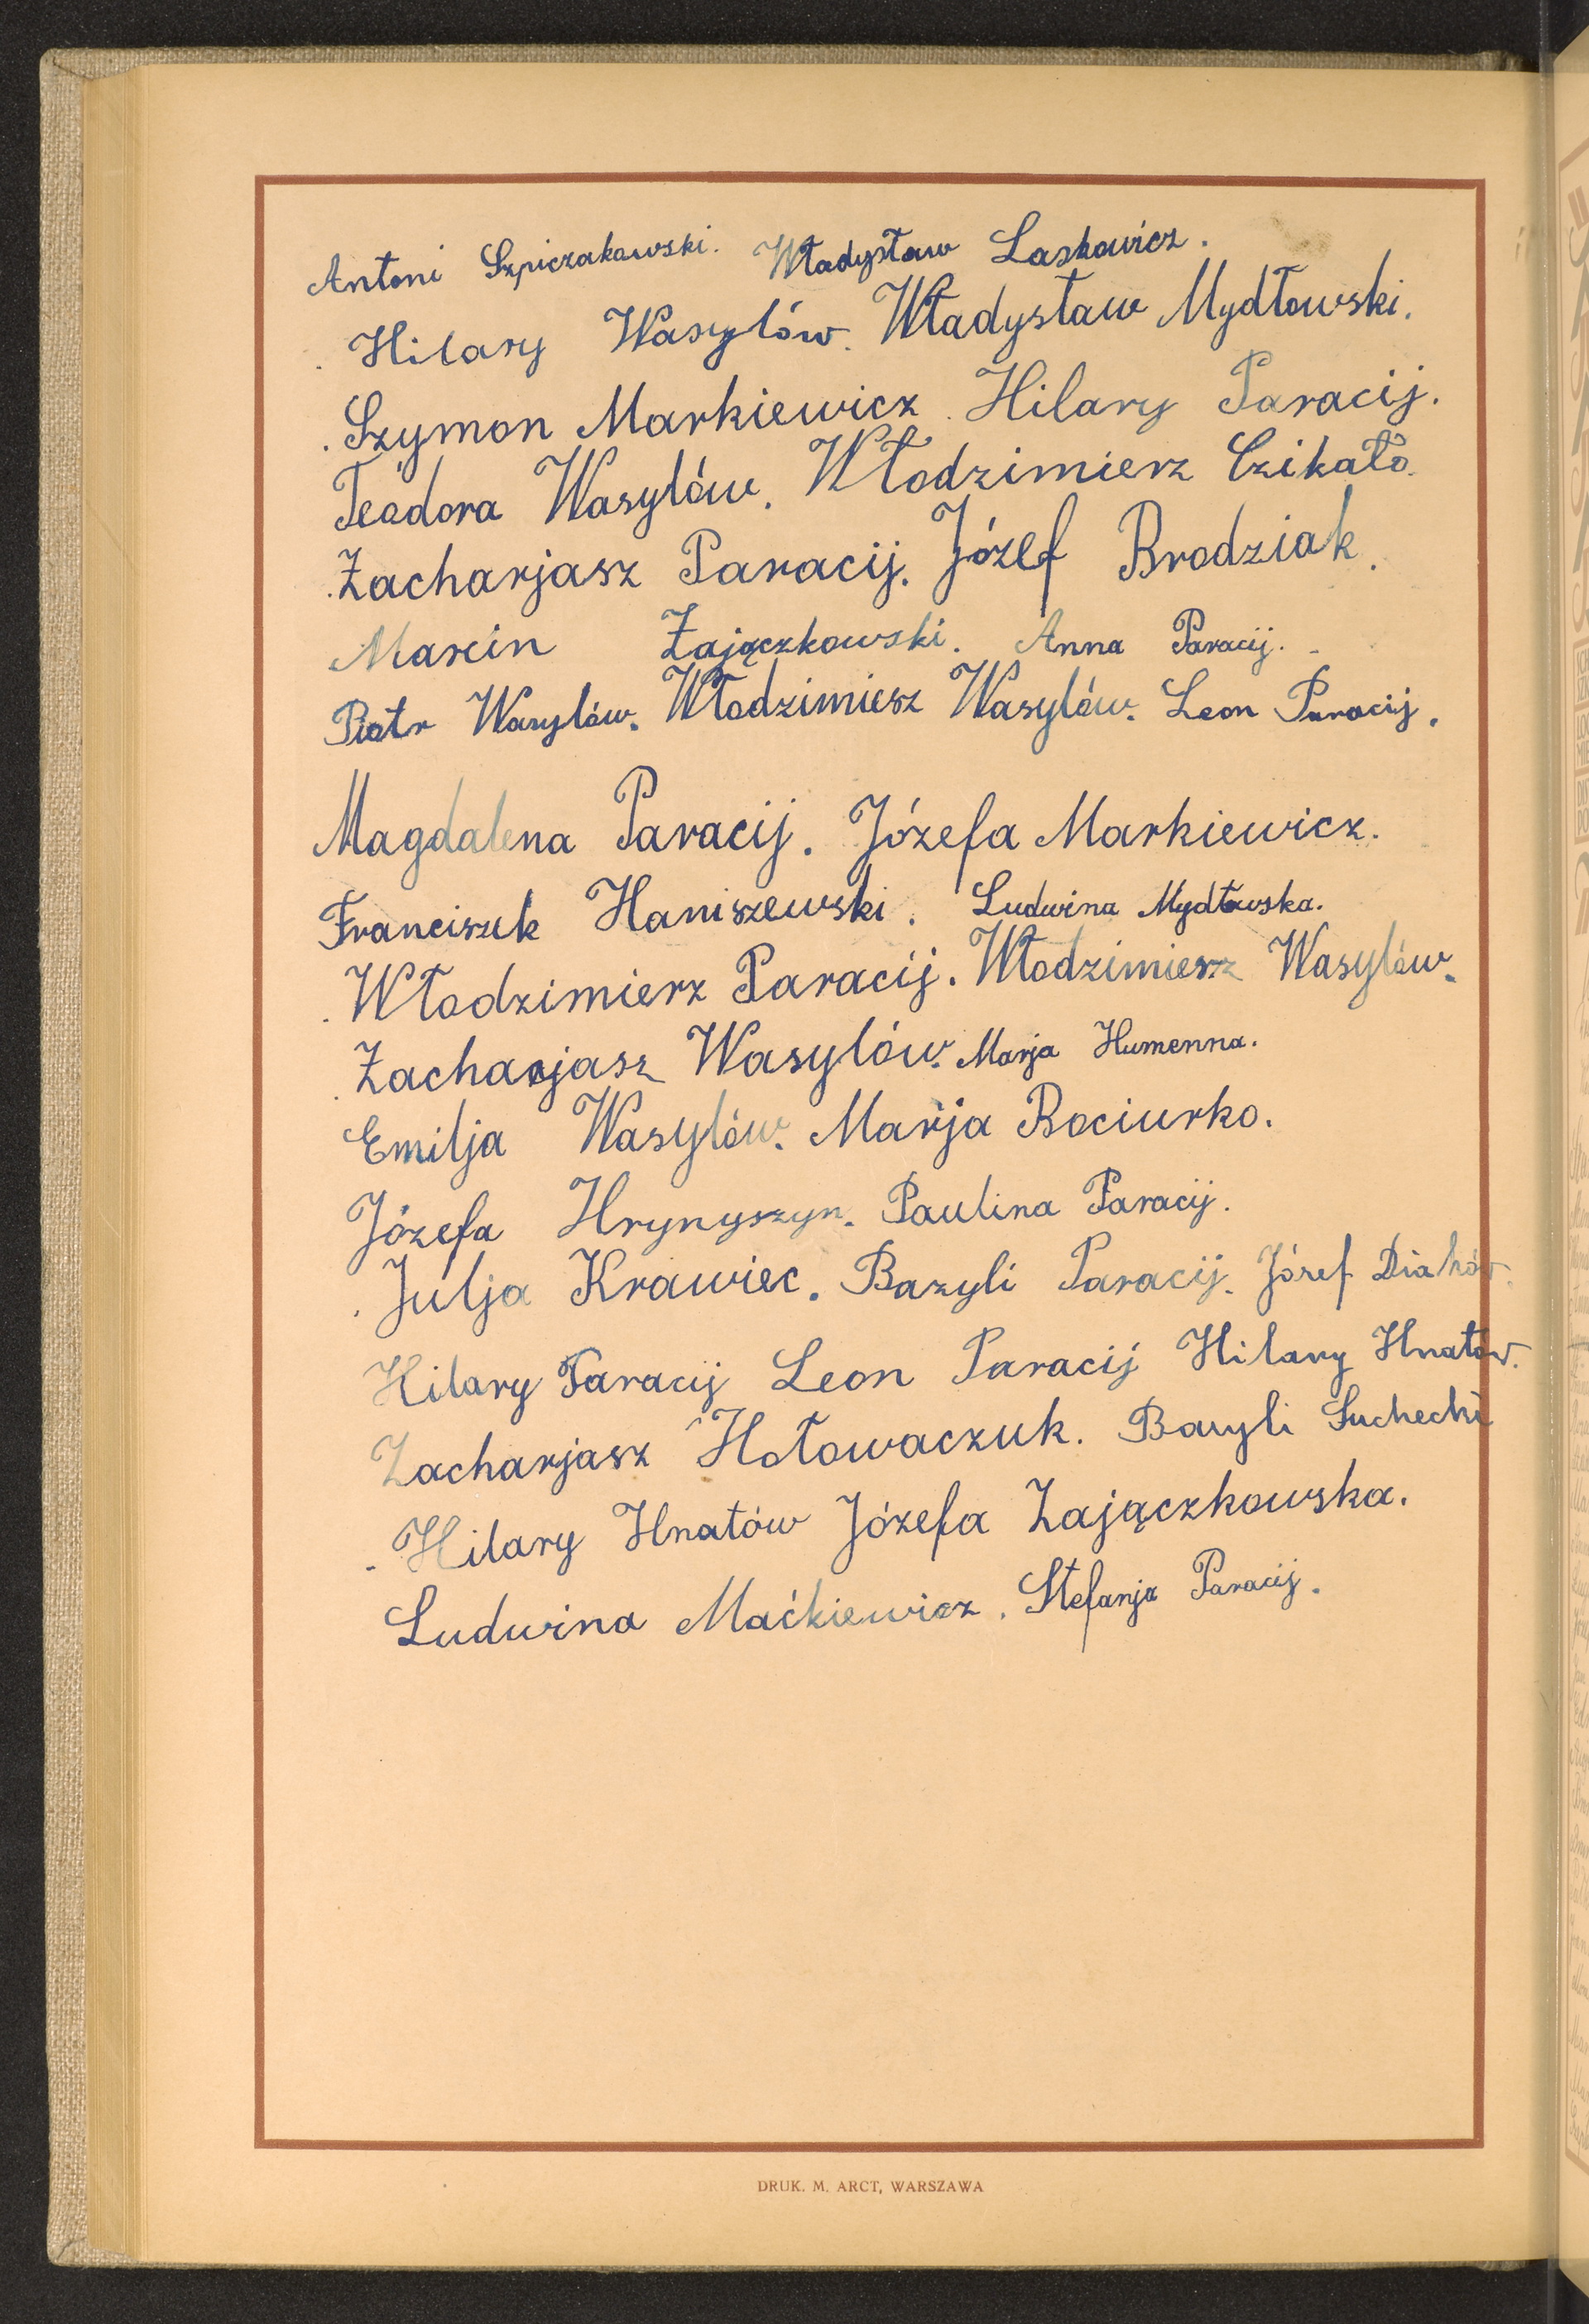 Antoni Szpiczakowski. Władysław Laskowicz.
Hilary Wasylów. Władysław Mydłowski.
Szymon Markiewicz. Hilary Paracij.
Teodora Wasylów. Włodzimierz Czikało.
Zacharjasz Paracij. Józef Brodziak.
Marcin Zajączkowski. Anna Paracij.
Piotr Wasylów. Włodzimiesz Wasylów. Leon Paracij.
Magdalena Paracij. Józefa Markiewicz.
Franciszek Haniszewski. Ludwina Mydłowska.
Włodzimierz Paracij. Włodzimierz Wasylów.
Zacharjasz Wasylów. Marja Humenna.
Emilja Wasylów. Marja Bociurko.
Józefa Hrynyszyn. Paulina Paracij.
Julja Krawiec. Bazyli Paracij. Józef Diaków.
Hilary Paracij Leon Paracij Hilary Hnatów.
Zacharjasz Hołowaczuk. Bazyli Suchecki
Hilary Hnatów Józefa Zajączkowska.
Ludwina Maćkiewicz. Stefanja Paracij.
DRUK. M. ARCT, WARSZAWA